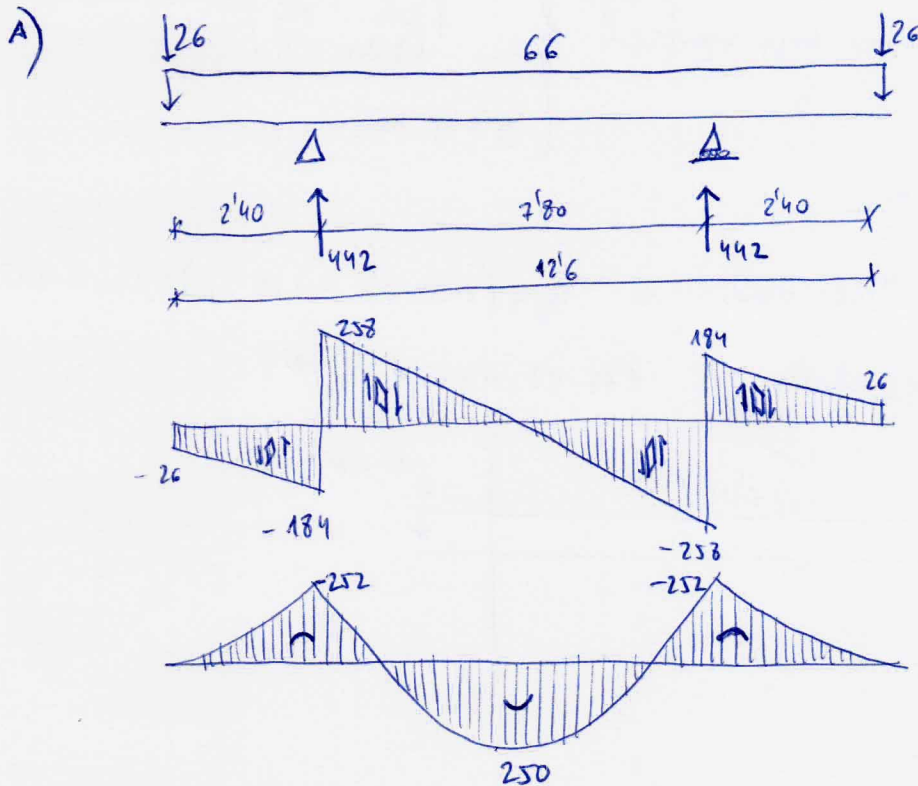 A)
26 66 26
2'40 7'80 2'40
442 442
12'6
258 184
26
-26
-184 -258
-252 -252
250